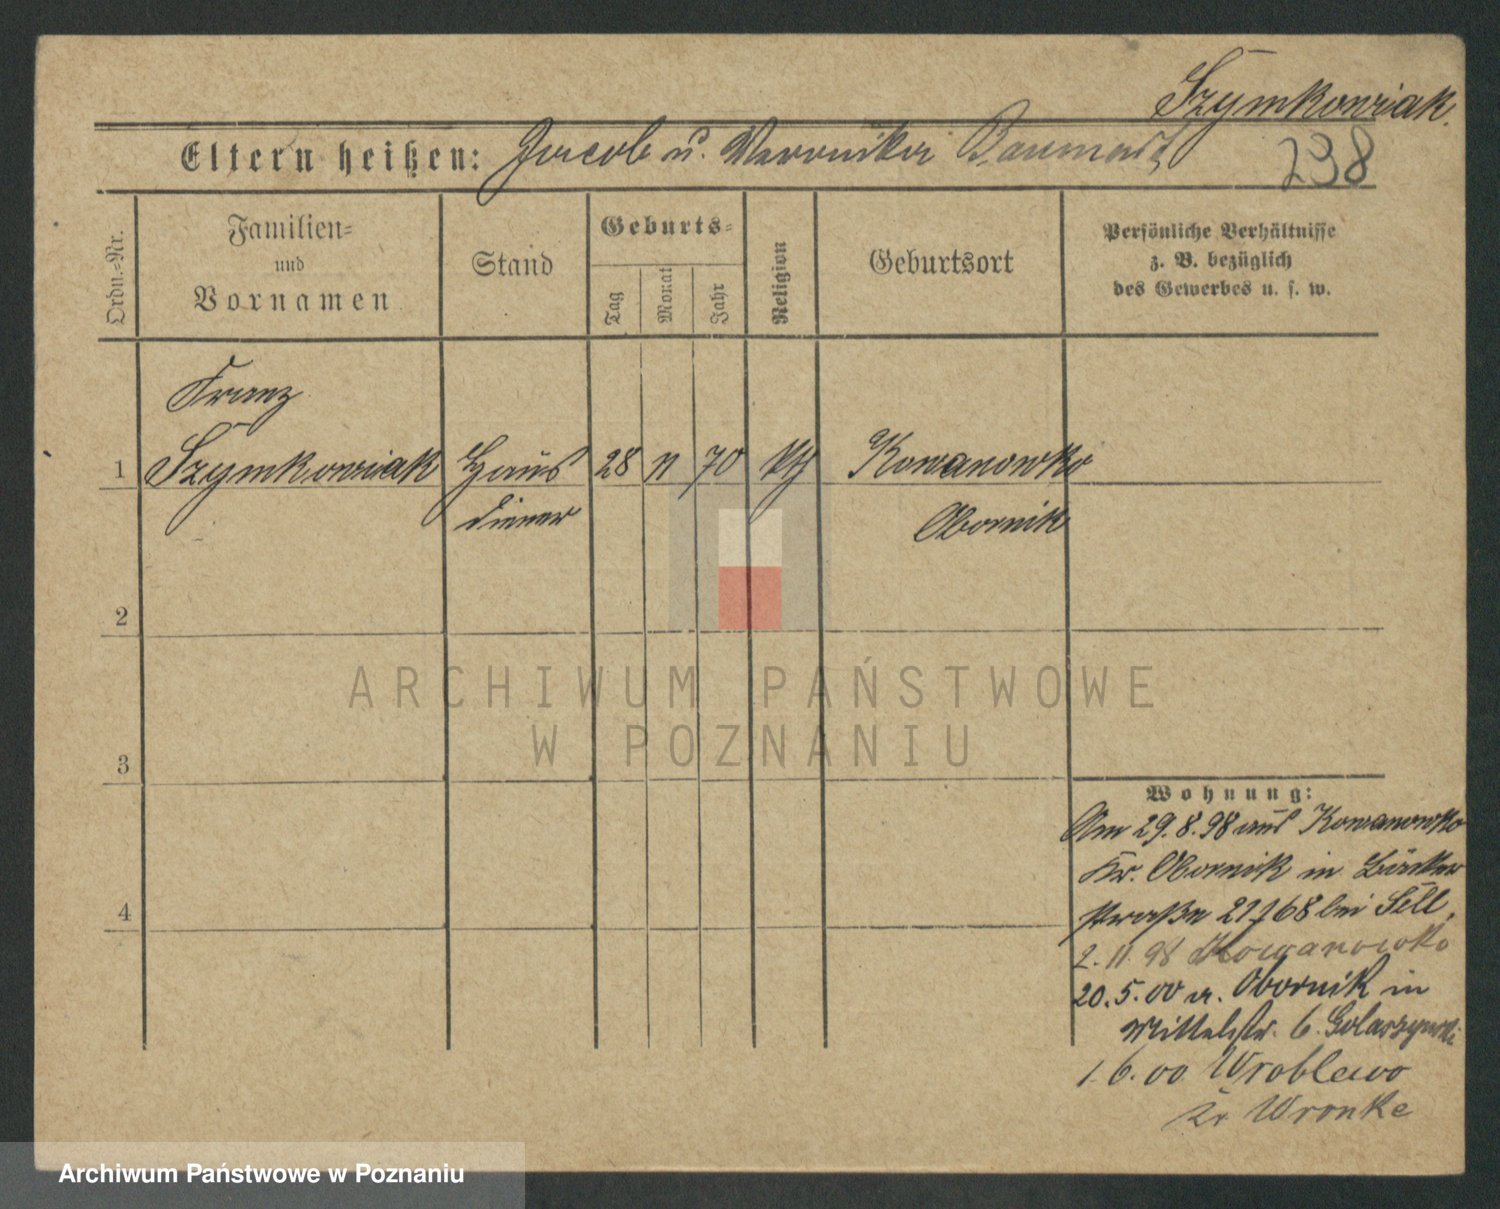 Szymkowiak.
Eltern heißen: Jacob u. Veronika
238
Ordn.=Nr.
Familien=
und
Vornamen
Stand
Geburts=
Tag
Monat
Jahr
Religion
Geburtsort
Persönliche Verhältnisse
z. B. bezüglich
des Gewerbes u. s. w.
Franz
1 Szymkowiak Haus 28 11 70 kth Kowanowko
diener Obornik
2
ARCHIWUM PAŃSTWOWE
W POZNANIU
3
Wohnung:
Am 29.8.98 aus Kowanowko
Kr. Obornik in Bäcker
straße 21 bei Sell,
4
2.11.98 Kowanowko
20.5.00 a. Obornik in
Mittelstr. 6.
1.6.00 Wroblewo
Kr Wronke
Archiwum Państwowe w Poznaniu